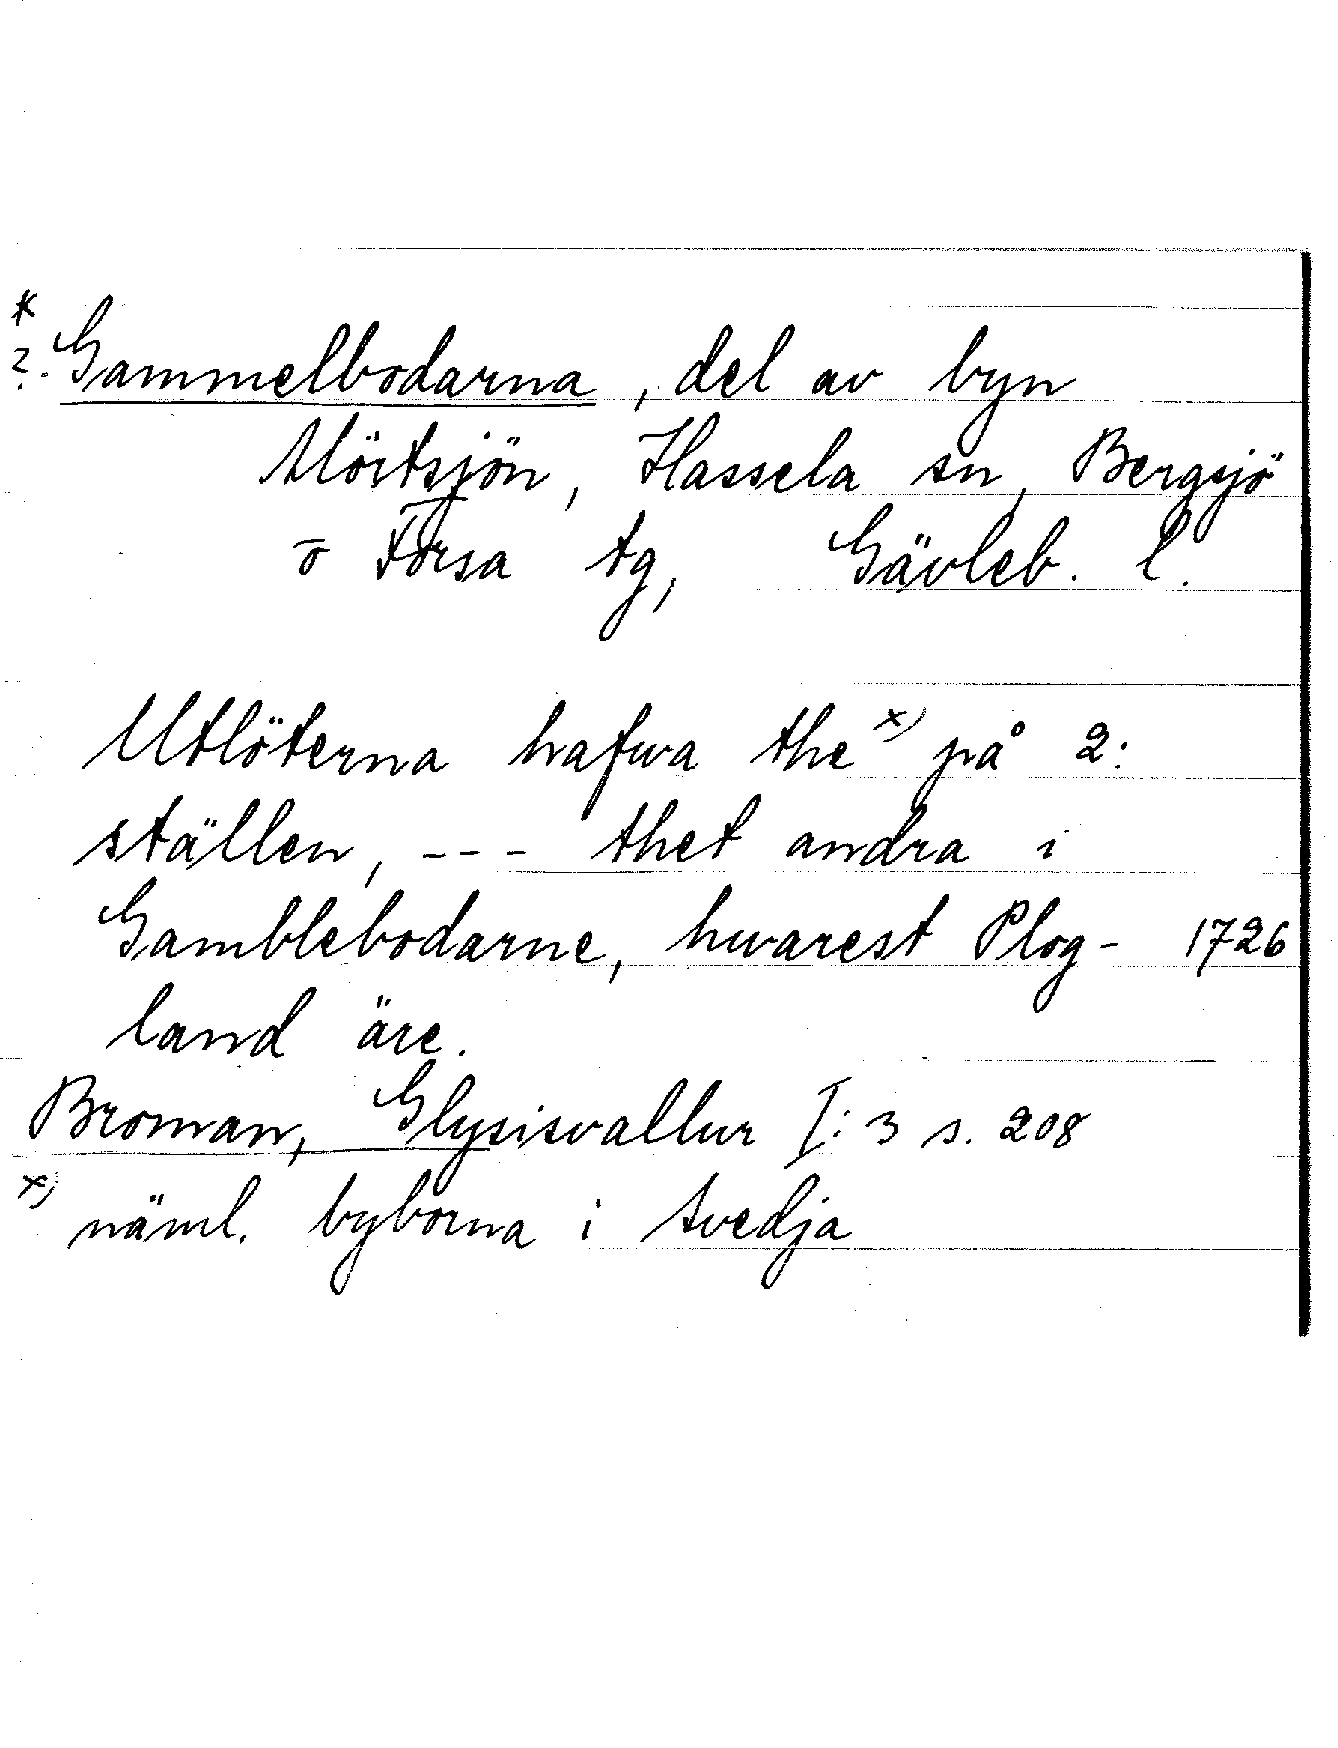 *
?. Gammelbodarna, del av byn
Mörtsjön, Hassela sn, Bergsjö
o Forsa tg, Gävleb. l.
Utlöterna hafwa the x) på 2:
ställen, --- thet andra i
Gamblebodarne, hwarest Plog- 1726
land äre.
Broman, Glysisvallur I:3 s. 208
x) näml. byborna i Svedja